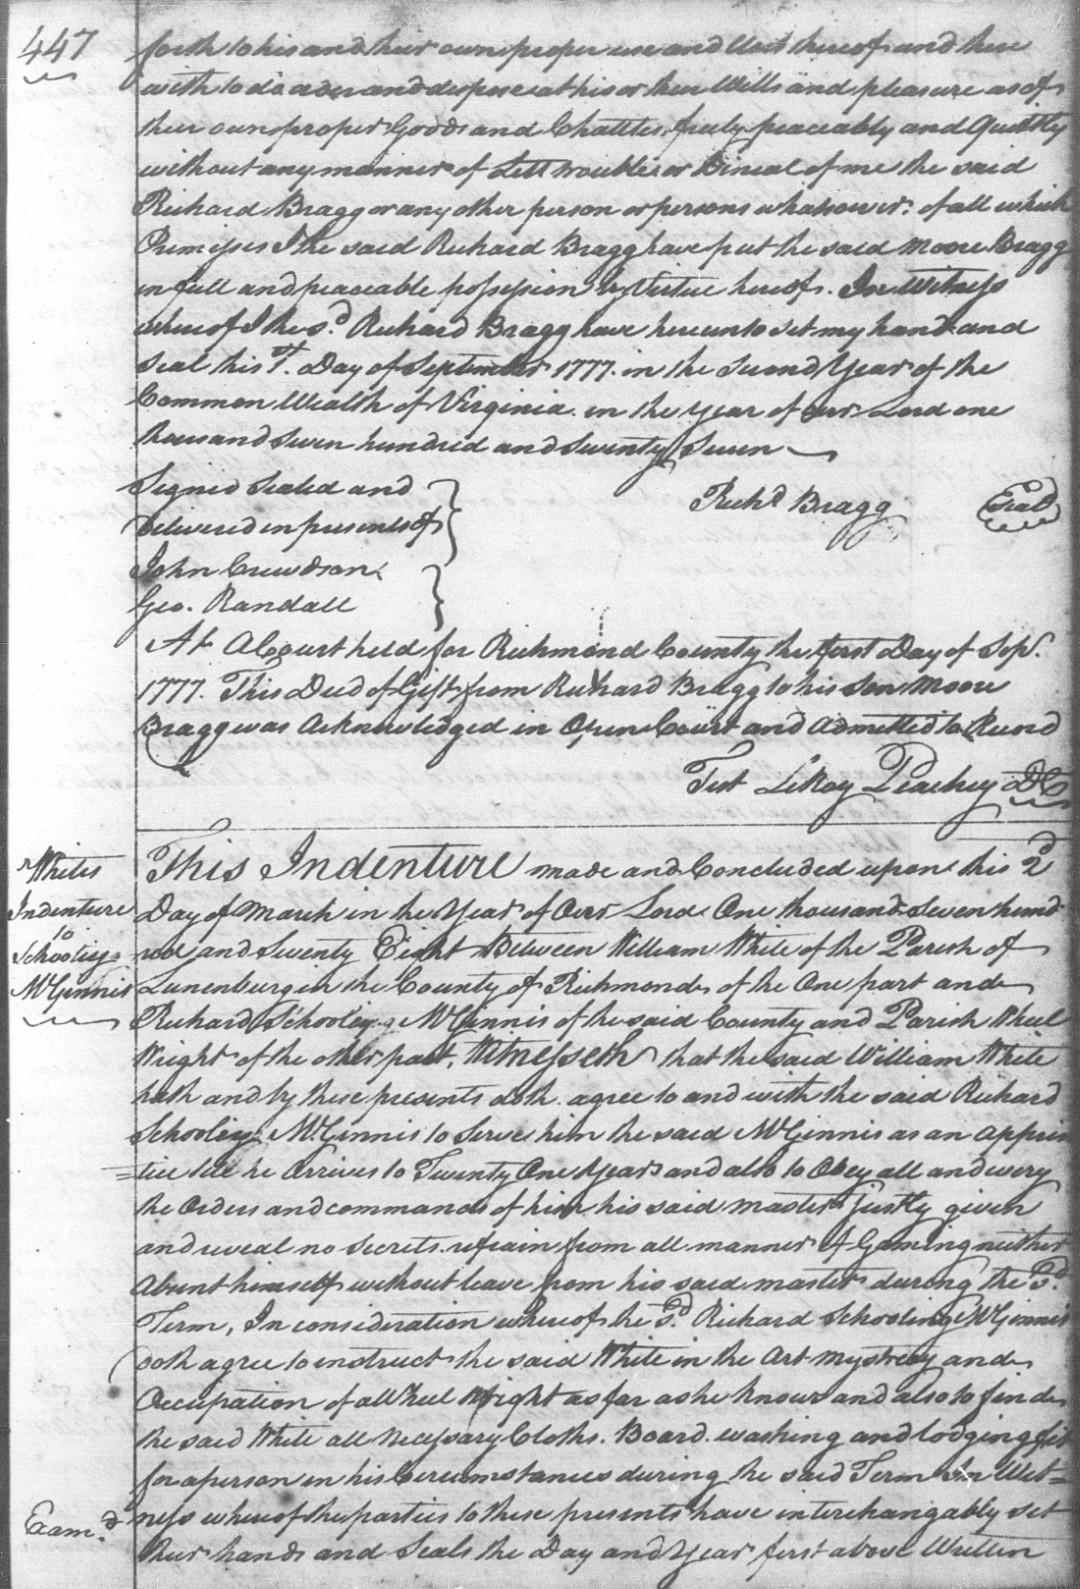 447
forth to his and their own proper use and Uses thereof and there
with to do order and dispose at his or their Wills and pleasure as of
their own proper Goods and Chattles freely peaceably and Quietly
without any manner of Lett trouble or Dineal of me the said
Richard Bragg or any other person or persons whatsoever: of all which
Premises I the said Richard Bragg have put the said Moore Bragg
in full and peaceable possession by Virtue hereof. In Witness
whereof I the sd. Richard Bragg have hereunto set my hand and
seal this Day of September 1777. in the Second Year of the
Common Wealth of Virginia in the year of our Lord one
thousand Seven hundred and Seventy Seven
Signed Sealed and
Delivered in presents of
Richd Bragg Seal
John Crewdson
Geo. Randall
At A Court held for Richmond County the first Day of Sepr.
1777. This Deed of Gift from Richard Bragg to his Son Moore
Bragg was Acknowledged in Open Court and Admitted to Record
Test LeRoy Peachey DC
Whites
Indenture
to
Schooley
McGinnis
This Indenture made and Concluded upon this 2d
Day of March in the Year of Our Lord One thousand Seven hund
red and Seventy Eight Between William White of the Parish of
Lunenburg in the County of Richmond of the One part and
Richard Schooley McGinnis of the said County and Parish Wheel
Wright of the other part, Witnesseth that the said William White
hath and by these presents doth agree to and with the said Richard
Schooley McGinnis to Serve him the said McGinnis as an Appren
=tice till he Arrives to Twenty One Years and also to Obey all and every
the Orders and commands of him his said master justly given
and reveal no Secrets refrain from all manner of Gaming neither
Absent himself without leave from his said master during the Sd.
Term, In consideration whereof the Sd. Richard Schooling McGinnis
doth agree to instruct the said White in the Art mystrey and
Occupation of a Wheel Wright as far as he knows and also to find
the said White all necessary Cloths. Board. washing and lodging fit
for a person in his Cercumstances during the said Term In Wit=
Examd. ness whereof the parties to these presents have interchangably set
their hands and Seals the Day and Year first above Written